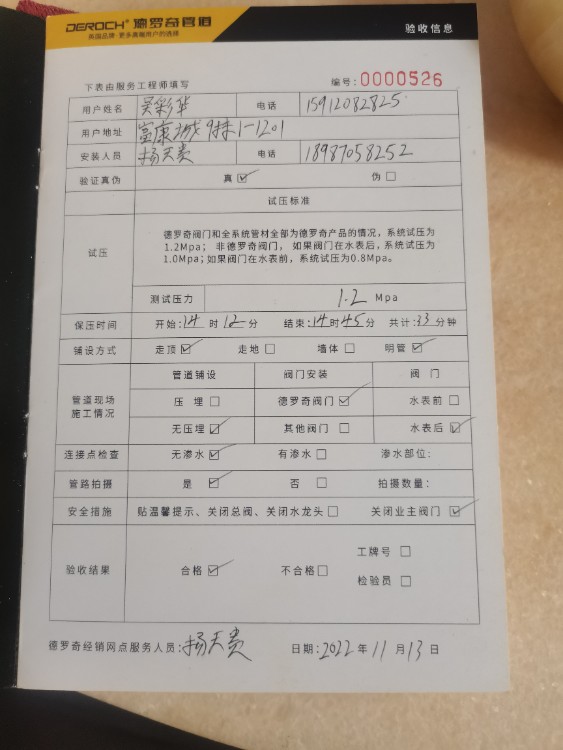 DEROCH® 德罗奇管道
英国品牌·更多高端用户的选择
验收信息
下表由服务工程师填写 编号:0000526
用户姓名 吴彩华 电话 15912082825
用户地址 富康城 9栋1-1201
安装人员 杨天贵 电话 18987058252
验证真伪 真☑ 伪□
试压标准
试压
德罗奇阀门和全系统管材全部为德罗奇产品的情况，系统试压为
1.2Mpa； 非德罗奇阀门， 如果阀门在水表后，系统试压为
1.0Mpa；如果阀门在水表前，系统试压为0.8Mpa。
测试压力 1.2 Mpa
保压时间 开始:14时12分 结束:14时45分 共计:33分钟
铺设方式 走顶☑ 走地□ 墙体□ 明管☑
管道现场施工情况
管道铺设 阀门安装 阀 门
压 埋□ 德罗奇阀门☑ 水表前□
无压埋☑ 其他阀门□ 水表后☑
连接点检查 无渗水☑ 有渗水□ 渗水部位:
管路拍摄 是☑ 否□ 拍摄数量:
安全措施 贴温馨提示、关闭总阀、关闭水龙头□ 关闭业主阀门☑
验收结果 合格☑ 不合格□ 工牌号□
检验员□
德罗奇经销网点服务人员:杨天贵 日期:2022年11月13日